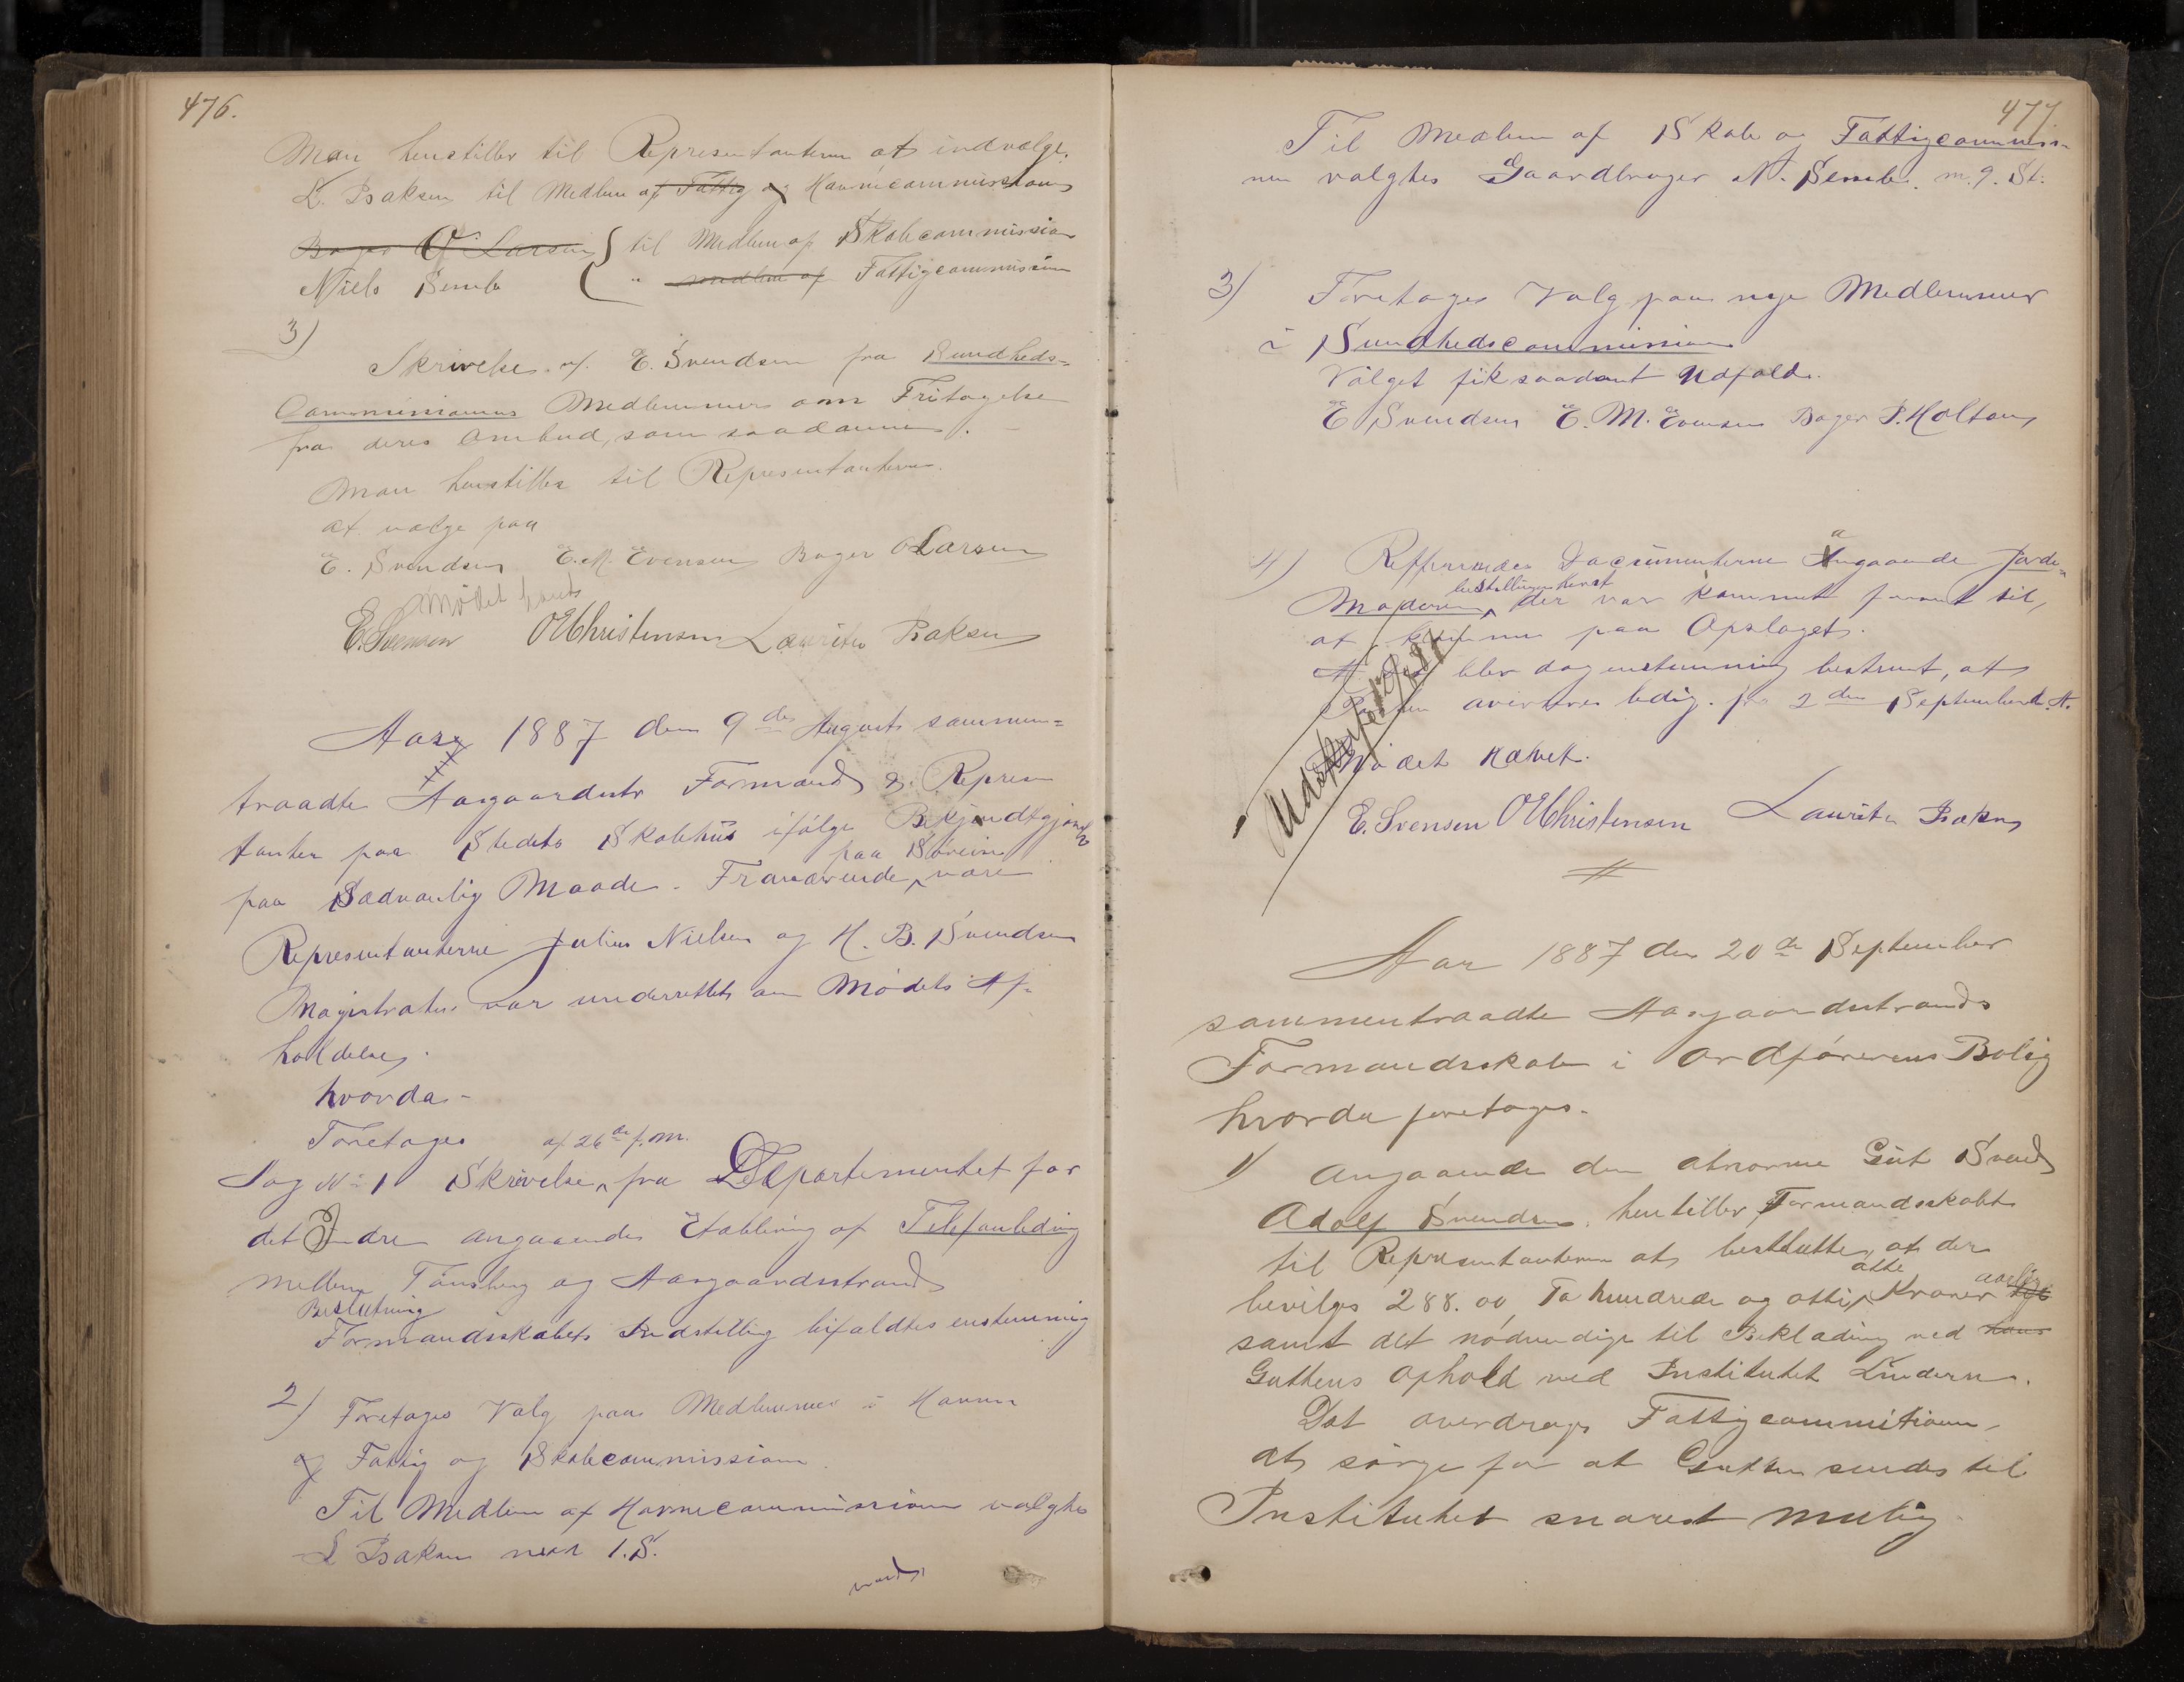 476.
Man henstiller til Representanterne at indvælge
L. Isaksen til Medlem af Fattig og Havnecommissionen
Bager O. Larsen } til Medlem af Skolecommission
Niels Semb { " medlem af Fattigcommission
3)
Skrivelse af E. Svendsen fra Sundheds-
Commissionens Medlemmer om Fritagelse
fra deres Ombud, som saadanne. -
Man henstiller til Representanterne
at vælge paa
E. Svendsen E. M. Evensen Bager O Larsen
Mødet hævet
E. Svensen OEChristensen Lauritz Isaksen
Aar 1887 den 9de August sammen=
traadte Aasgaardstr Formænd & Repres
tanter paa Stedets Skolehus ifølge Bekjendtgjørelse
paa Sædvanlig Maade. Fraværende paa Søreise vare
Representanterne Julius Nielsen og H. B. Svendsen
Magistraten var underrettet om Mødets Af-
holdelse.
hvorda -
Foretoges
Sag No 1 Skrivelse af 26de f. m. fra Departementet for
det Indre angaaende Etablering af Telefonledning
mellem Tønsberg og Aasgaardsstrand
Beslutning
Formandsskabets Indstilling bifaldtes enstemmig
2) Foretoges Valg paa Medlemmer i Havne
og Fattig og Skolecommission.
Til Medlem af Havnecommissionen valgtes
L Isaksen med 1. S.
477
Til Medlem af Skole og Fattigcommissio-
nen valgtes Gaardbruger N. Semb. m. 9. St.
3) Foretoges Valg paa nye Medlemmer
i Sundhedscommissionen
Valget fik saadant Udfald.
E Svendsen E. M. Evensen Bager P. Holtan
4) Refferredes Documenterne Angaaende Jorde-
Moderen bestillingen der var kommet frem til,
at paa Opslaget.
blev dog enstemmig bestemt, at
Posten averteres ledig. fra 2den September d. A.
Mødet hævet.
Udskrift
E. Svensen OEChristensen Lauritz Isaksen
Aar 1887 den 20de September
sammentraadte Aasgaardstrands
Formandsskab i Ordførerens Bolig
hvorda foretoges.
1) Angaaende den abnorme Gut Svend
Adolf Svendsen, henstiller Formandsskabet
til Representanterne at beslutte, at der
bevilges 288.00 To hundrede og otti otte Kroner aarlig
samt det nødvendige til Beklædning ved hans
Guttens Ophold ved Institutet Lindern.
Det overdrages Fattigcommitionen,
at sørge for at Gutten sendes til
Institutet snarest mulig.